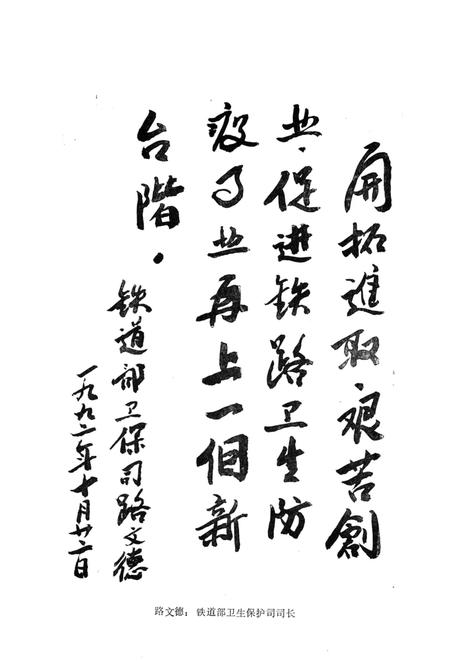 开拓進取、艰苦創
业、促进铁路卫生防
疫事业再上一個新
台階。
铁道部卫保司路文德
一九九二年十月廿二日
路文德：铁道部卫生保护司司长